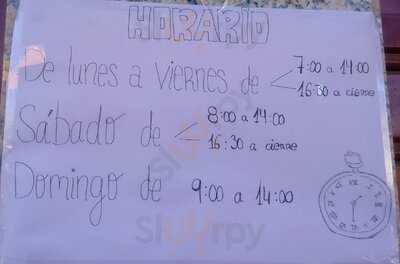 HORARIO
De lunes a viernes de < 7:00 a 14:00
16:30 a cierre
Sábado de < 8:00 a 14:00
16:30 a cierre
Domingo de 9:00 a 14:00
sluurpy
sluurpy